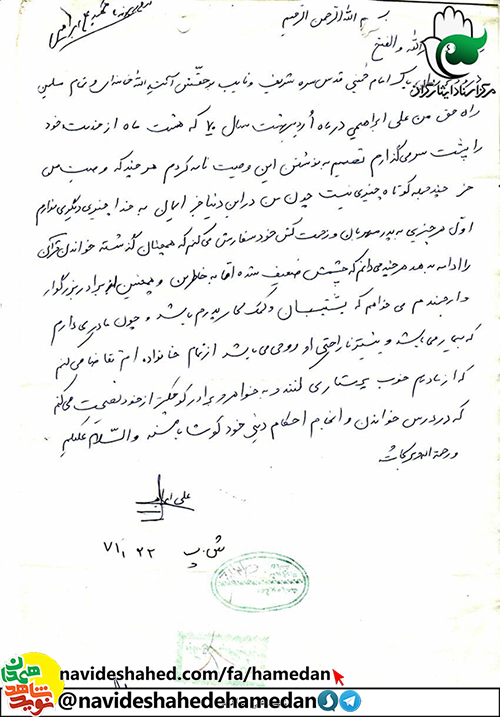 بسم الله الرحمن الرحیم
الله والفتح
مرکز اسناد ایثارگران
پاک امام خمینی قدس سره شریف و نایب بر حقش آیت الله خامنه‌ای و تمام مسلمین
راه حق من علی ابراهیمی در ماه اردیبهشت سال ۷۰ که هشت ماه از خدمت خود
را پشت سر می‌گذارم تصمیم به نوشتن این وصیت نامه کردم هر چند که وصیت من
جز چند جمله کوتاه چیزی نیست چون من در این دنیا جز ایمان به خدا چیزی دیگری ندارم
اول هر چیزی به پدر مهربان و زحمت کش خود سفارش می‌کنم که همچنان گذشته خواندن قرآن
را ادامه بدهد هر چند می‌دانم که چشمش ضعیف شده اما به خاطر من و همچنین از برادر بزرگوار
و ارجمندم می خواهم که پشتیبان و کمک کار پدرم باشد و چون مادری دارم
که بیمار می باشد و بیشتر ناراحتی او روحی می باشد از تمام خانواده ام تقاضا می کنم
که از مادرم خوب پرستاری کنند و به خواهر و برادر کوچکتر از خود نصیحت می‌کنم
که در درس خواندن و انجام احکام دینی خود کوشا باشند والسلام علیکم
ورحمة الله وبرکاته
علی ابراهیمی
ش. پ ۷۱،۲۲
نوید شاهد همدان
navideshahed.com/fa/hamedan
@navideshahedehamedan